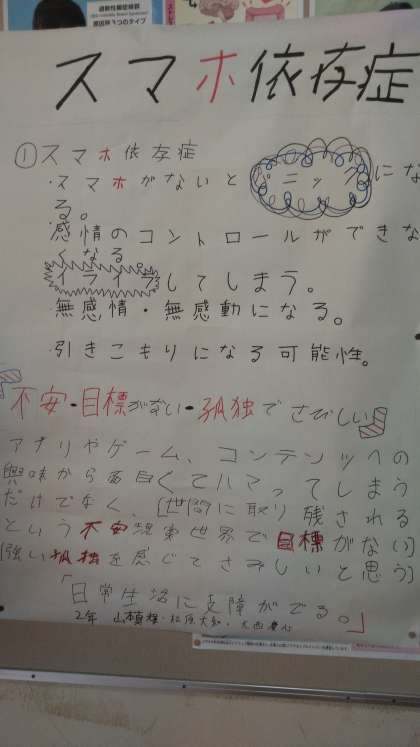 過敏性腸症候群
原因別3つのタイプ
スマホ依存症
①スマホ依存症
・スマホがないとパニックにな
る。
感情のコントロールができな
くなる。
イライラしてしまう。
無感情・無感動になる。
引きこもりになる可能性。
不安・目標がない・孤独でさびしい
アプリやゲーム、コンテンツへの
興味から面白くてハマってしまう
だけでなく、(世間に取り残される
という不安 現実世界で目標がない)
(強い孤独を感じてさみしいと思う)
「日常生活に支障がでる。」
2年